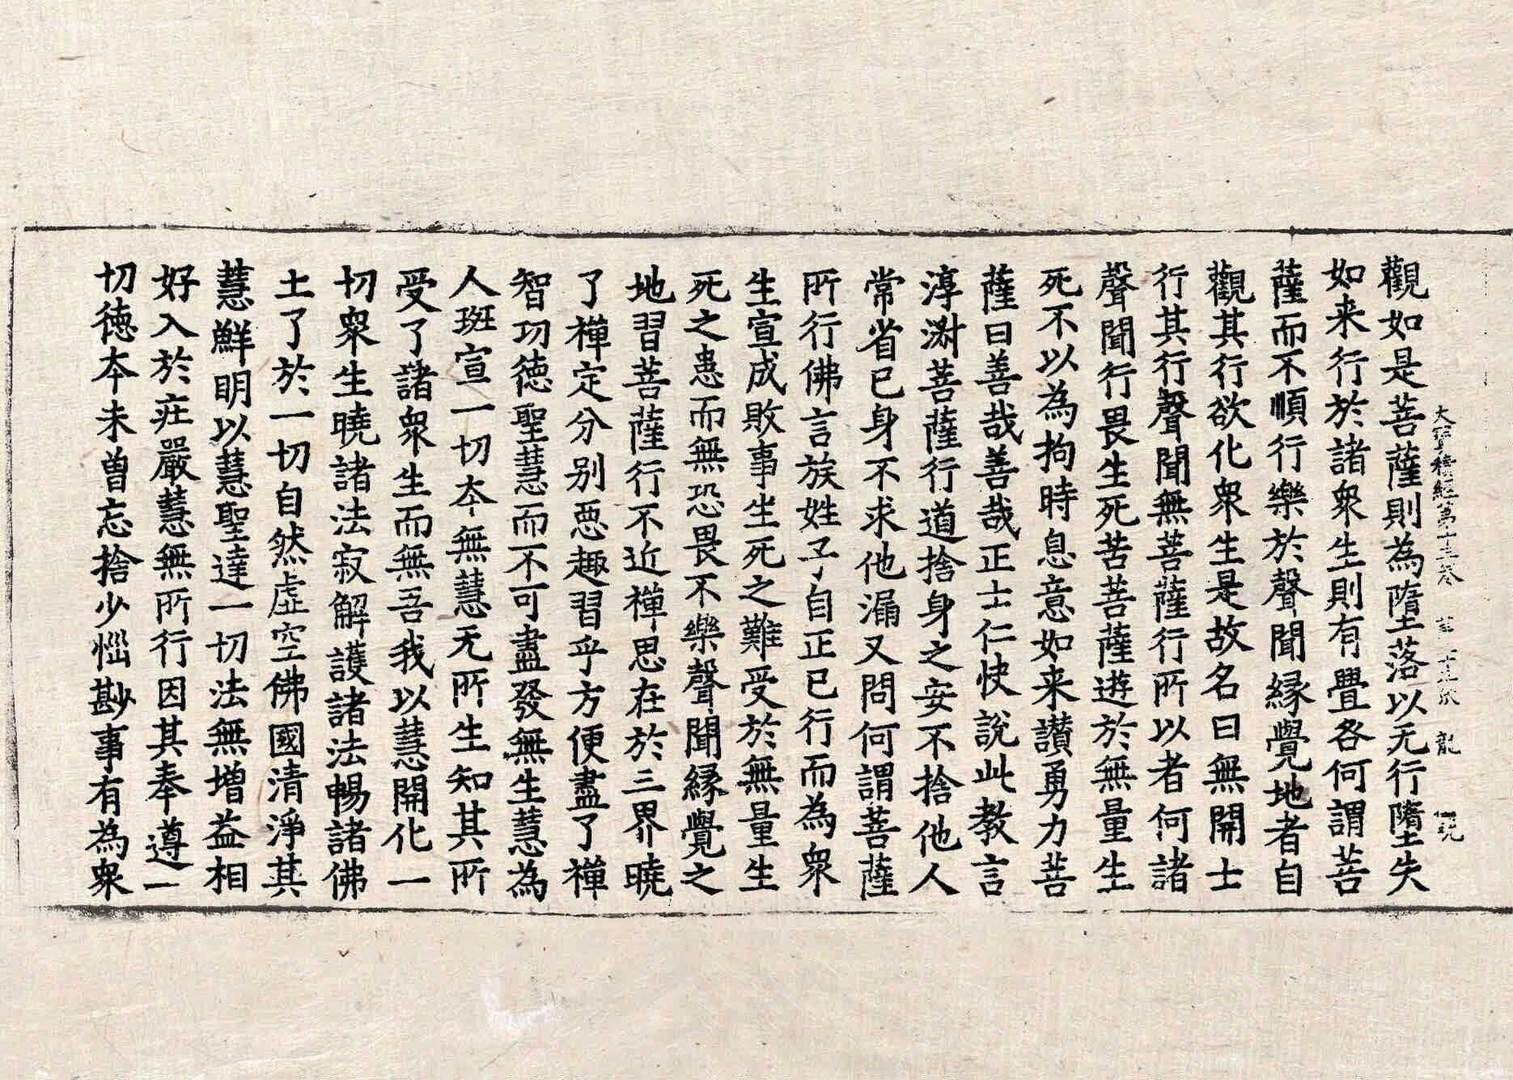 大寶積經第十三卷 第十五張 龍
觀如是菩薩則為墮落以无行墮失
如来行於諸衆生則有疊各何謂菩
薩而不順行樂於聲聞緣覺地者自
觀其行欲化衆生是故名曰無開士
行其行聲聞無菩薩行所以者何諸
聲聞行畏生死苦菩薩遊於無量生
死不以為拘時息意如来讃勇力菩
薩曰善哉善哉正士仁快說此教言
淳淑菩薩行道捨身之安不捨他人
常省已身不求他漏又問何謂菩薩
所行佛言族姓子自正已行而為衆
生宣成敗事生死之難受於無量生
死之患而無恐畏不樂聲聞緣覺之
地習菩薩行不近禪思在於三界曉
了禪定分别惡趣習乎方便盡了禪
智功德聖慧而不可盡發無生慧為
人班宣一切夲無慧无所生知其所
受了諸衆生而無吾我以慧開化一
切衆生曉諸法寂解護諸法暢諸佛
土了於一切自然虛空佛國清淨其
慧鮮明以慧聖達一切法無增益相
好入於莊嚴慧無所行因其奉遵一
切德夲未曽忘捨少惱尠事有為衆